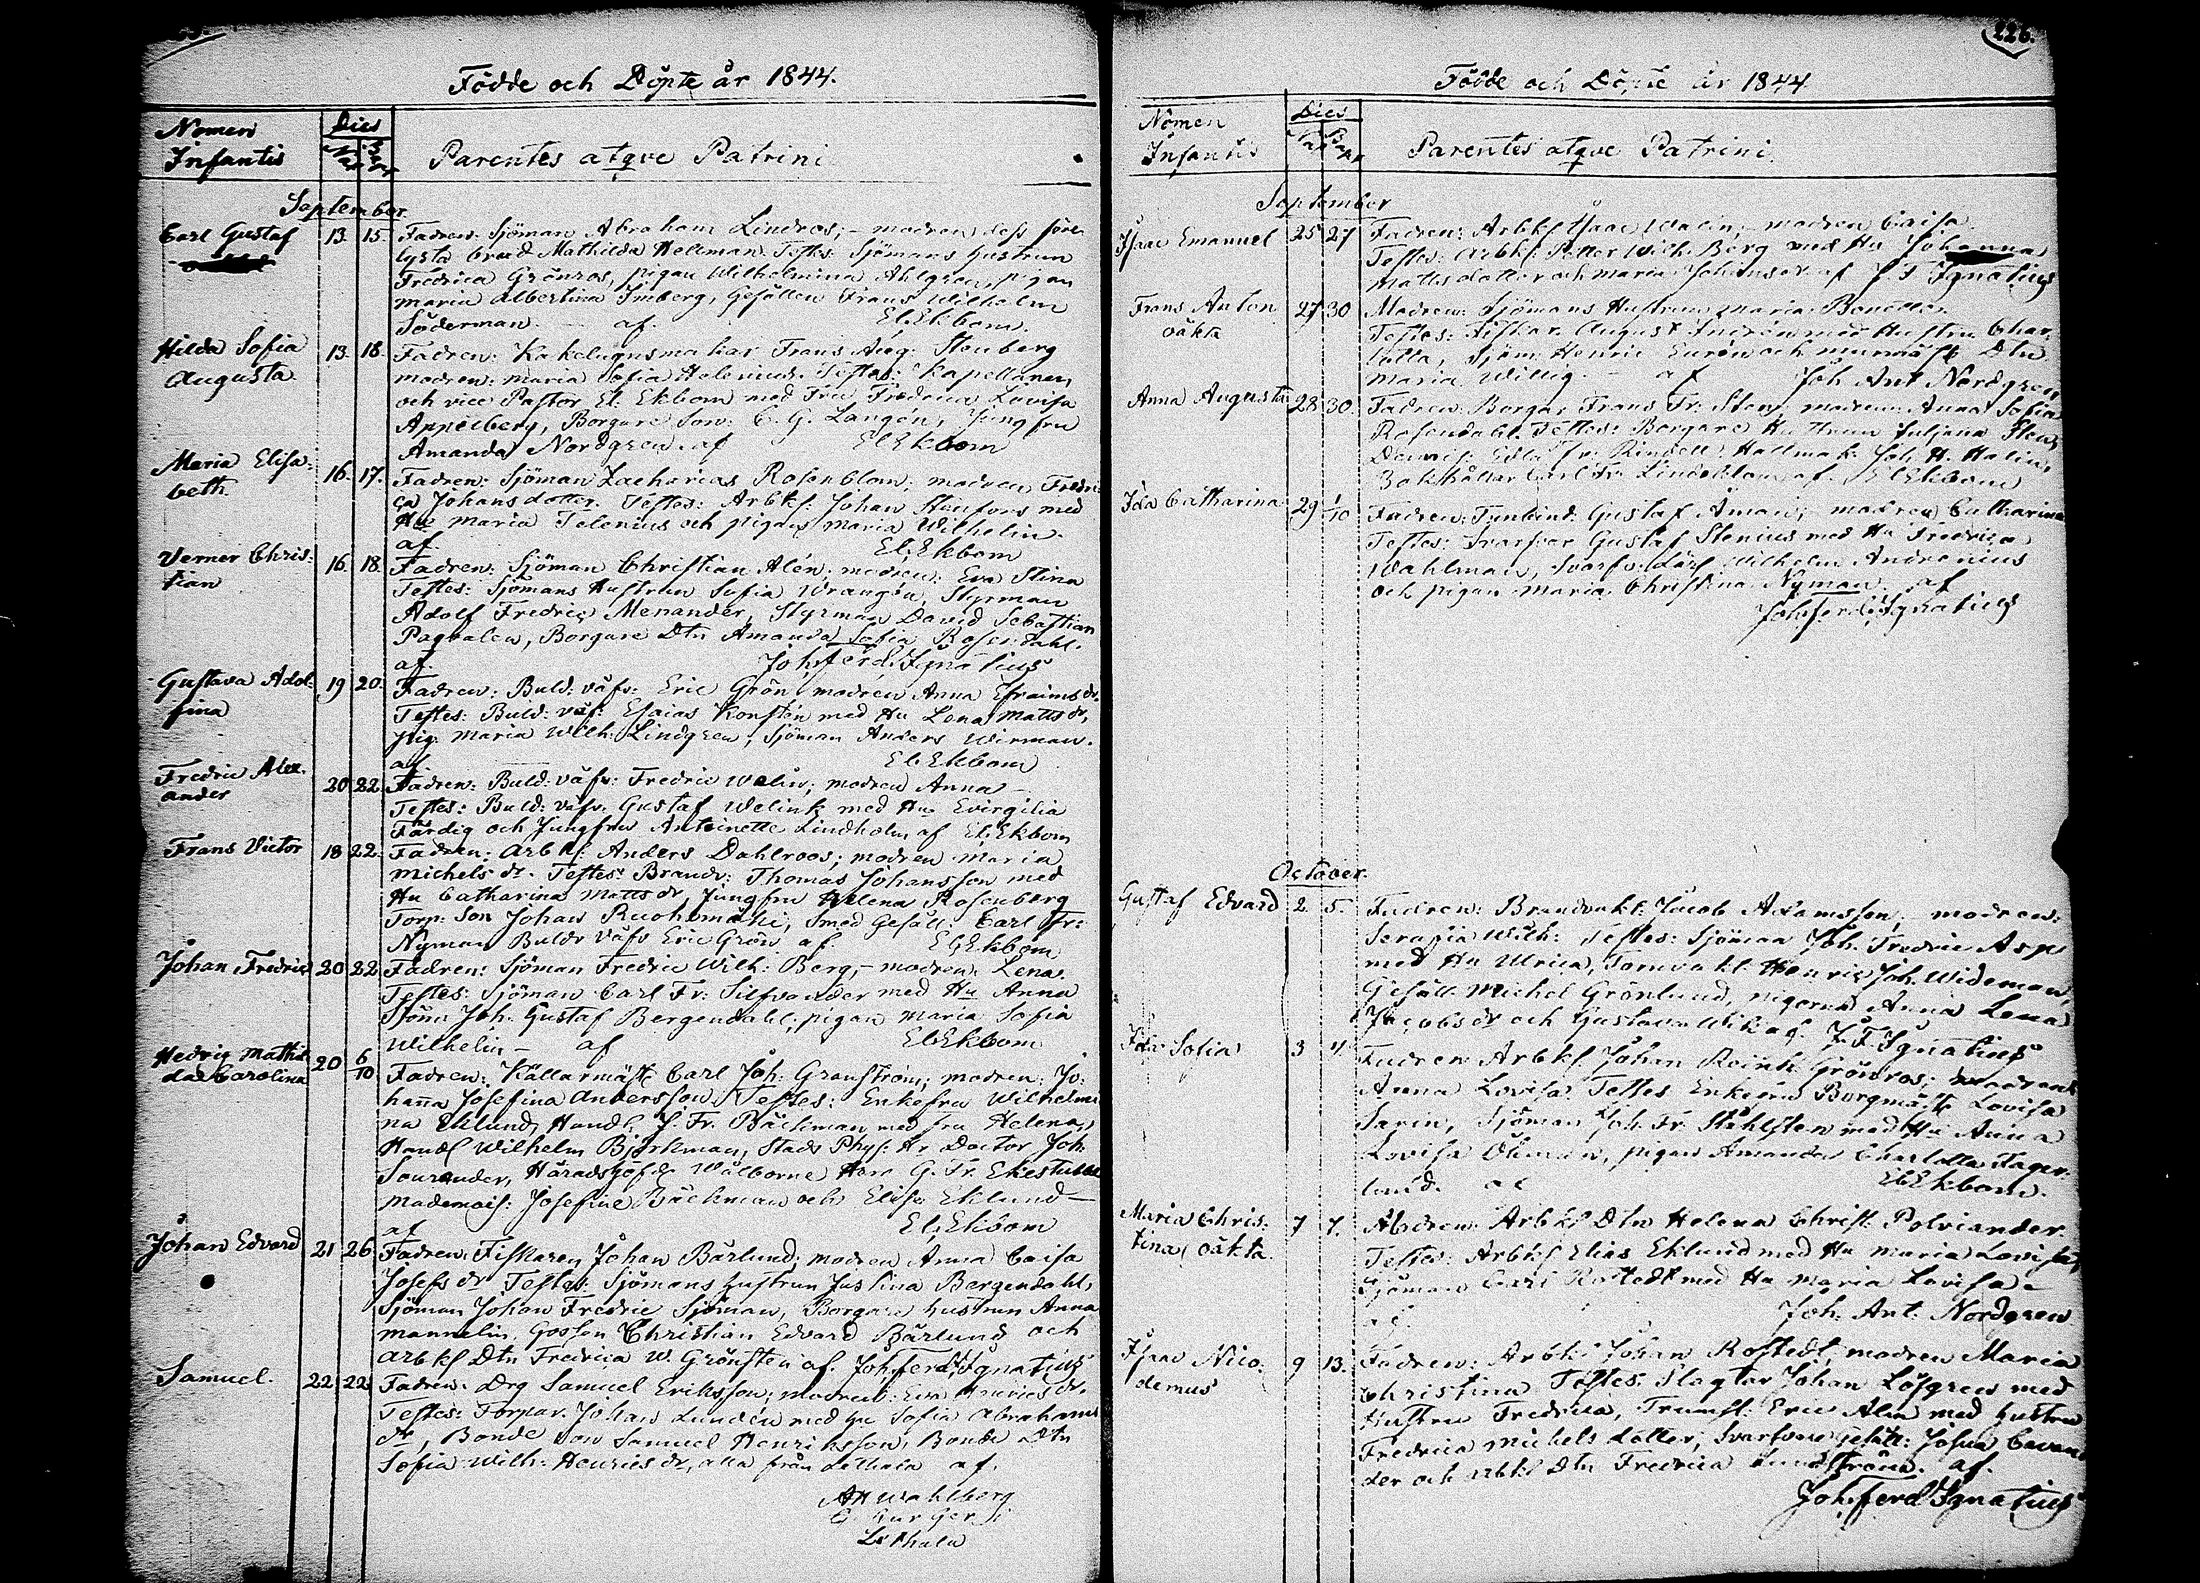 Födde och Döpte år 1844.
Nomen
Infantis
Dies
Nat
Bapt
Parentes atqve Patrini
September.
Carl Gustaf 13. 15. Fadren: Sjöman Abraham Lindros; – modren dess före
lysta brud Mathilda Hellman. Testes: Sjömans hustrun
Fredrica Grönros, pigan Wilhelmina Ahlgren, pigan
maria Albertina Imberg, Gesällen Frans Wilhelm
Söderman. af. El. Ekbom.
Hilda Sofia 13. 18. Fadren: Kakelugnsmakar Frans Aug: Stenberg
Augusta. modren: maria Sofia Helenius. Testes: Kapellanen
och vice Pastor El. Ekbom med Fru Fredrica Lovisa
Appelberg, Borgare Son: C. G. Langén, Jungfru
Amanda Nordgren. af El Ekbom
Maria Elisa- 16. 17. Fadren: Sjöman Zacharias Rosenblom; modren Fredri-
beth. ca Johansdotter. Testes: Arbkl: Johan Stenfors med
Hu maria Telenius och pigan maria Wilhelin.
af. El. Ekbom
Verner Chris- 16. 18. Fadren: Sjöman Christian Alén; modren: Eva Stina
tian Testes: Sjömans Hustrun Sofia Wrangén, Styrman
Adolf Fredric Menander, Styrman David Sebastian
Pagvalen, Borgare Dtn Amanda Sofia Rosendahl.
af. Joh. Ferd. Ignatius
Gustava Adol- 19 20. Fadren: Buld: väfv: Eric Grön modren Anna Efraims dr.
fina Testes: Buld: väf: Esaias Konstén med Hu Lena Matts dr,
pig: Maria Wilh: Lindgren, Sjöman Anders Wirman.
af El Ekbom
Fredric Alex- 20 22. Fadren: Buld: väfv: Fredric Welin; modren Anna –
ander Testes: Buld: väfv: Gustaf Welink med Hu Evirgilia
Färdig och Jungfru Antoinette Lindholm af El. Ekbom
Frans Victor 18 22. Fadren: Arbkl: Anders Dahlroos; modren Maria
Michels dr. Testes: Brandv: Thomas Johansson med
Hu Catharina Matts dr Jungfru Helena Rosenberg
Torp: Son Johan Ruohomäki, Smed Gesäll Carl Fr:
Nyman Buldv väfv Eric Grön af El. Ekbom
Johan Fredric 20 22 Fadren: Sjöman Fredric Wilh: Berg, – modren: Lena.
Testes: Sjöman Carl Fr: Silfvander med Hu Anna
Sjöm: Joh. Gustaf Bergendahl, pigan Maria Sofia
Wilhelin – af El Ekbom
Hedvig Mathil- 20 6/10 Fadren: Källarmäst: Carl Joh: Granström; modren: Jo-
da Carolina hanna Josefina Andersson. Testes: Enkefru Wilhelmi
na Eklund, Handl. J. Fr. Bäckman med fru Helena,
Handl Wilhelm Björkman, Stads Phys: Hr Doctor Joh.
Sourander, Häradshöfd: Wälborne Herr G. Fr. Ekestubbe
Mademois: Josefine Bäckman och Elise Eklund –
af El. Ekbom
Johan Edvard 21 26 Fadren: Fiskaren Johan Bärlund; modren Anna Caisa
Josefs dr Testes: Sjömans hustrun Justina Bergendahl,
Sjöman Johan Fredric Sjöman, Borgare hustrun Anna
Mannelin, Gossen Christian Edvard Bärlund och
Arbkl Dtn Fredrica W. Grönsten af. Joh Ferd. Ignatius
Samuel. 22 22 Fadren: Drg Samuel Eriksson, modren: Eva Henrics dr.
Testes: Torpar. Johan Lundén med hu Sofia Abrahams
dr, Bonde son Samuel Henriksson, Bonde Dtn
Sofia Wilh: Henrics dr, alla från Lethala af.
Wahlberg
Lethala
226.
Födde och Döpte år 1844
Nomen
Infantis
Dies
Nat
Bapt
Parentes atqve Patrini.
September
Isaac Emanuel 25 27 Fadren: Arbkl Isaac Walin; – modren Caisa
Testes: Arbkl: Petter Wilh. Berg med Hu Johanna
Mattsdotter och maria Johans dr af J F Ignatius
Frans Anton 27 30 Modren: Sjömans Hustrun Maria
oäkta Testes: Fiskar. August Indrén med Hustru Char-
lotta, Sjöm: Henric Eurén och murmäst: Dtn
Maria Willig – af Joh Ant Nordgren
Anna Augusta 28 30. Fadren: Borgar Frans Fr: Sten; modren: Anna Sofia
Rosendahl. Testes: Borgare Hustrun Juljana Sten,
Demois: Edla Fr: Rindell, Hattmak: Joh H. Halin,
Bokhållar Carl Fr: Lindeblom af. El Ekbom
Ida Catharina 29 1/10 Fadren: Gustaf Åman; – modren Catharina
Testes: Svarfvar Gustaf Stenius med Hu Fredrica
Wahlman, Svarfv: Lärl Wilhelm Andrenius
och pigan Maria Christina Nyman. af
Joh. Ferd. Ignatius
October.
Gustaf Edvard 2 5. Fadren: Brandvakt: Jacob Adamsson, modren:
Serafia Wilh: Testes: Sjöman Joh. Fredric Asp
med Hu Ulrica, Tornvakt. Henric Joh. Wideman,
Gesäll Michel Grönlund, pigorna Anna Lena
Jacobs dr och Gustava Wik af. J. F. Ignatius
Ida Sofia 3 4. Fadren Arbkl Johan Reinh. Grönros; modren
Anna Lovisa. Testes Enkefru Borgmäst: Lovisa
Sarin, Sjöman Joh. Fr. Ståhlsten med Hu Anna
Lovisa Öhman, pigan Amanda Charlotta Fager-
lund. af El Ekbom.
Maria Chris- 7 7. Modren: Arbkl Dtn Helena Christ. Polviander.
tina, oäkta Testes: Arbkl Elias Eklund med Hu Maria Lovisa,
Sjöman Carl Rostedt med Hu Maria Lovisa –
af. Joh. Ant. Nordgren
Isaac Nico- 9 13. Fadren: Arbkl Johan Rostedt, modren Maria
demus Christina Testes: Slagtar Johan Löfgren med
Hustru Fredrica, Trumsl: Eric Alm med hustru
Fredrica Michels dotter, Svarfvare gesäll: Josua Cavan-
der och Arbkl Dtn Fredrica Lundström. af.
Joh. Ferd Ignatius